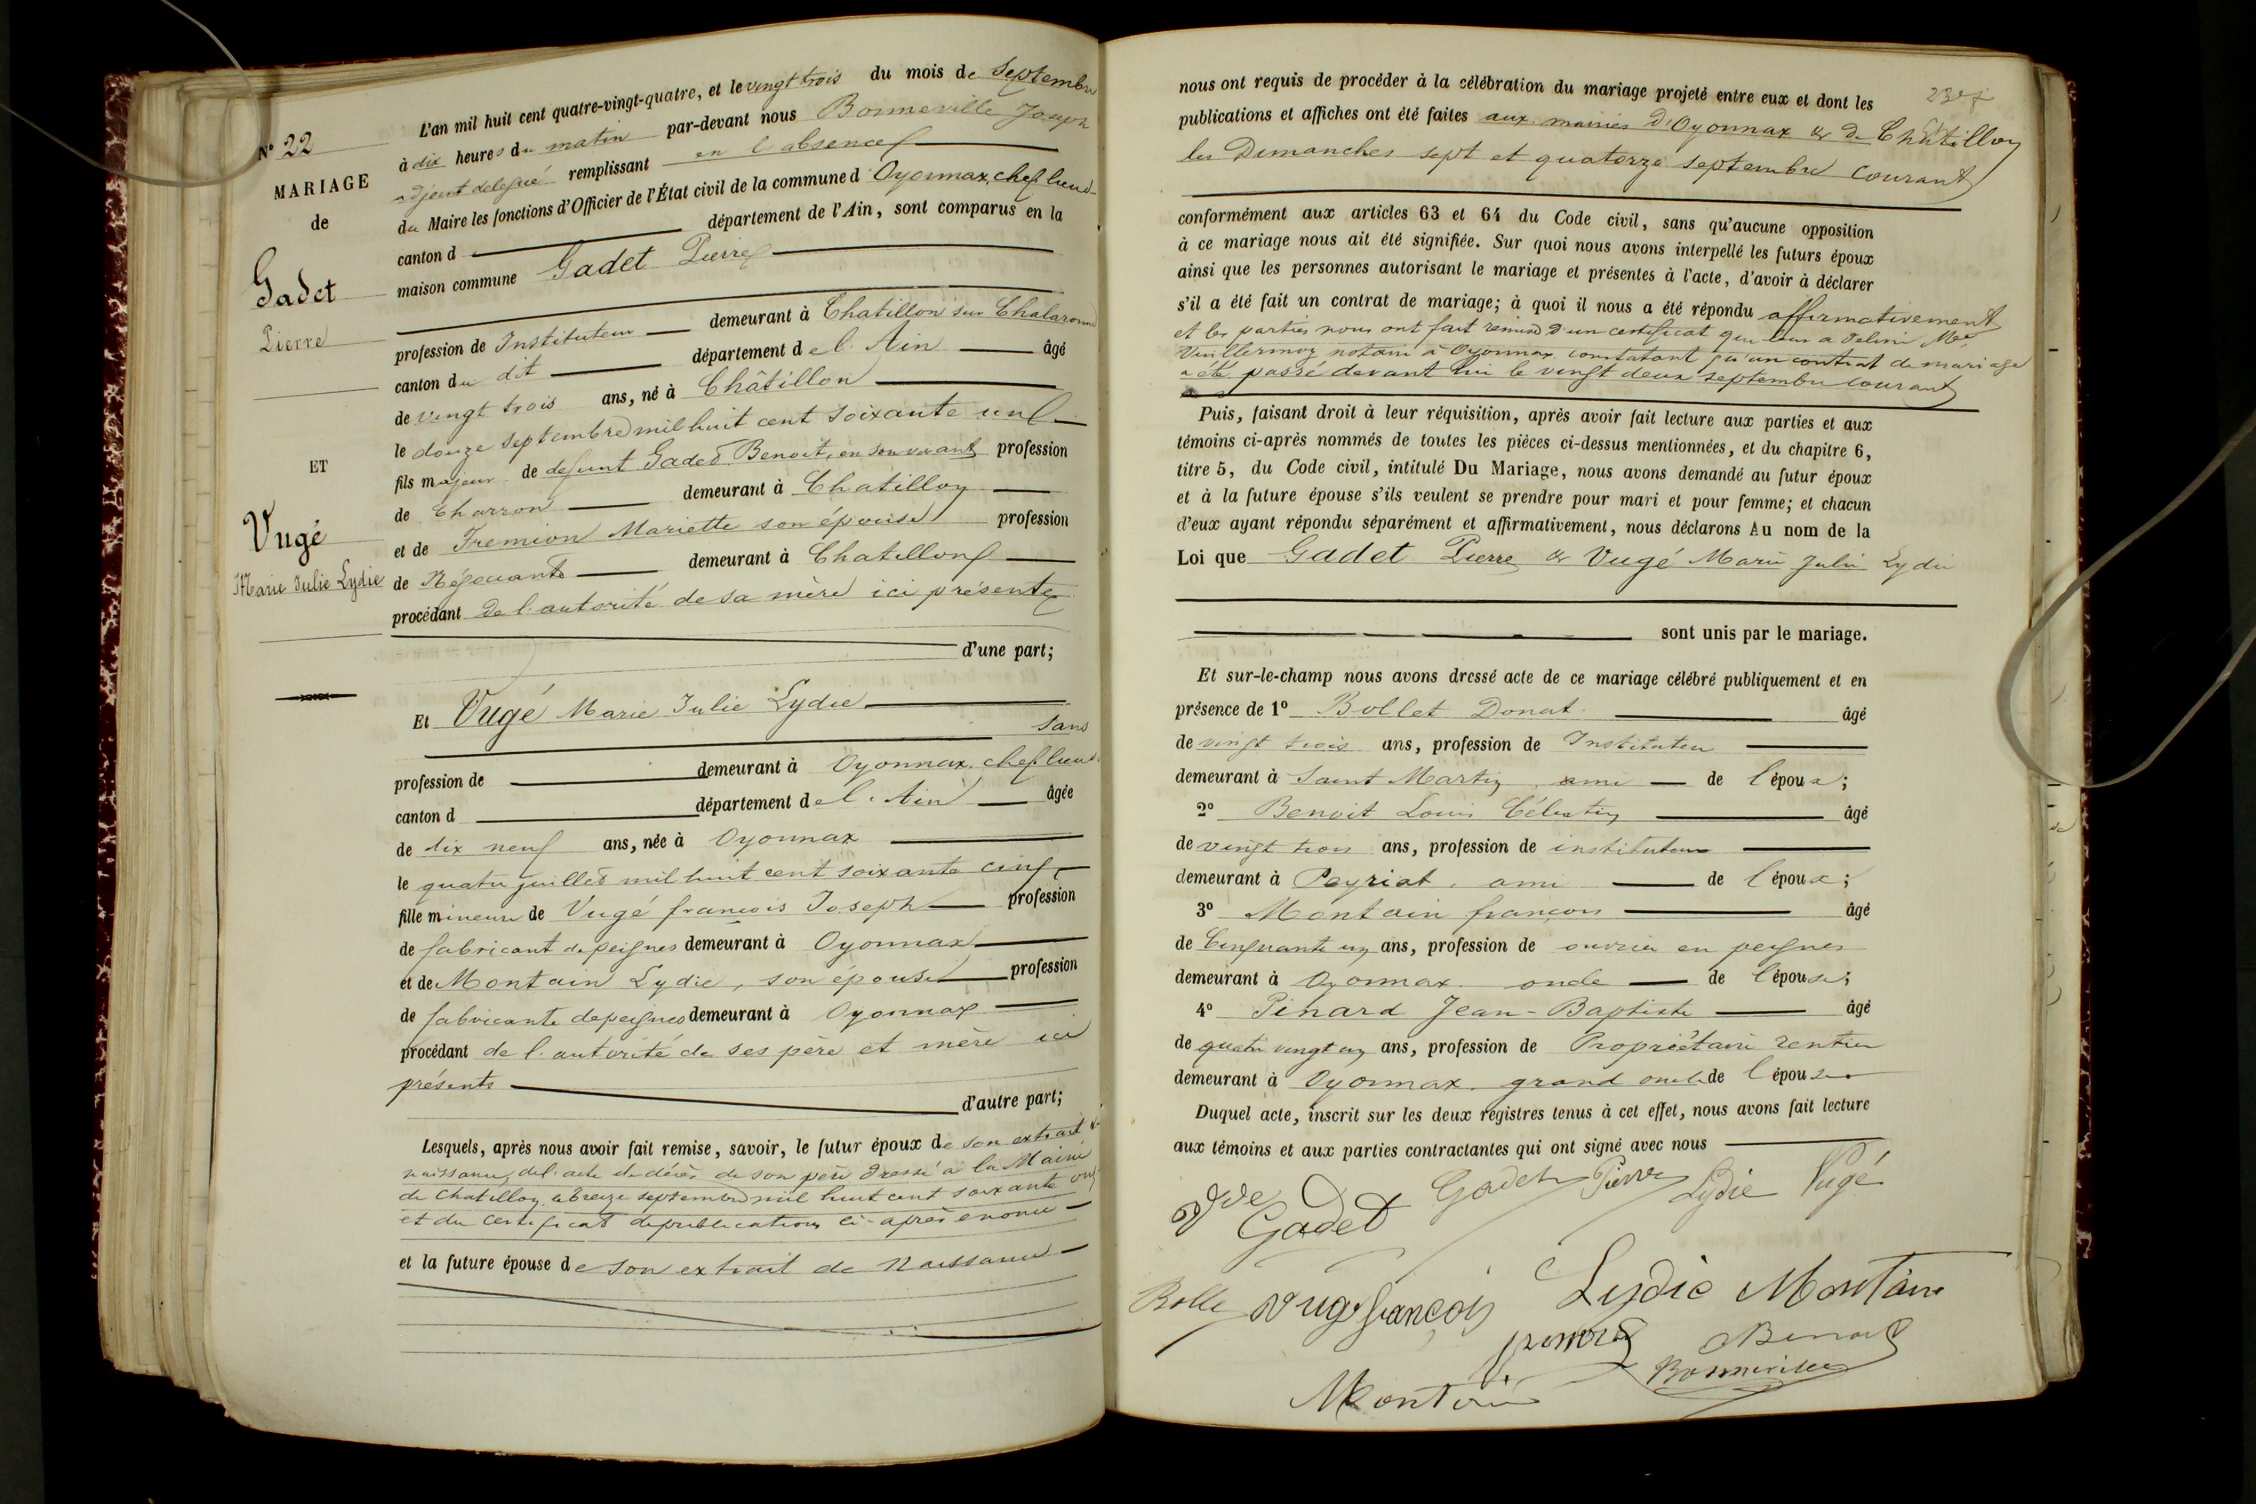 N° 22
MARIAGE
de
Gadet
Pierre
ET
Vugé
Marie Julie Lydie
L'an mil huit cent quatre-vingt-quatre, et le vingt trois du mois de Septembre
à dix heures du matin par-devant nous Bonneville Joseph
adjoint délégué remplissant en l'absence
du Maire les fonctions d'Officier de l'État civil de la commune d Oyonnax, chef lieu d
canton d département de l'Ain, sont comparus en la
maison commune Gadet Pierre
profession de Instituteur demeurant à Chatillon sur Chalaronne
canton du dit département de l'Ain âgé
de vingt trois ans, né à Châtillon
le douze septembre mil huit cent soixante un
fils majeur de defunt Gadet Benoit, en son vivant profession
de Charron demeurant à Chatillon
et de Fremion Mariette son épouse profession
de Négociante demeurant à Chatillon
procédant de l'autorité de sa mère ici présente
d'une part;
Et Vugé Marie Julie Lydie
sans
profession de demeurant à Oyonnax, chef lieu d
canton d département de l'Ain âgée
de dix neuf ans, née à Oyonnax
le quatre juillet mil huit cent soixante cinq
fille mineure de Vugé françois Joseph profession
de fabricant de peignes demeurant à Oyonnax
et de Montain Lydie, son épouse profession
de fabricante de peignes demeurant à Oyonnax
procédant de l'autorité de ses père et mère ici
présents
d'autre part;
Lesquels, après nous avoir fait remise, savoir, le futur époux de son extrait de
naissance, de l'acte de décès de son père dressé à la Mairie
de Chatillon le treize septembre mil huit cent soixante onze
et du certificat de publication ci-après énoncé
et la future épouse de son extrait de Naissance
nous ont requis de procéder à la célébration du mariage projeté entre eux et dont les
publications et affiches ont été faites aux mairies d'Oyonnax & de Châtillon
les Dimanches sept et quatorze septembre courant
conformément aux articles 63 et 64 du Code civil, sans qu'aucune opposition
à ce mariage nous ait été signifiée. Sur quoi nous avons interpellé les futurs époux
ainsi que les personnes autorisant le mariage et présentes à l'acte, d'avoir à déclarer
s'il a été fait un contrat de mariage; à quoi il nous a été répondu affirmativement
et les parties nous ont fait remise d'un certificat que leur a délivré Me
Vuillermoz notaire à Oyonnax constatant qu'un contrat de mariage
a été passé devant lui le vingt deux septembre courant
Puis, faisant droit à leur réquisition, après avoir fait lecture aux parties et aux
témoins ci-après nommés de toutes les pièces ci-dessus mentionnées, et du chapitre 6,
titre 5, du Code civil, intitulé Du Mariage, nous avons demandé au futur époux
et à la future épouse s'ils veulent se prendre pour mari et pour femme; et chacun
d'eux ayant répondu séparément et affirmativement, nous déclarons Au nom de la
Loi que Gadet Pierre & Vugé Marie Julie Lydie
sont unis par le mariage.
Et sur-le-champ nous avons dressé acte de ce mariage célébré publiquement et en
présence de 1° Bollet Donat âgé
de vingt trois ans, profession de Instituteur
demeurant à Saint Martin, ami de l'époux;
2° Benoit Louis Célestin âgé
de vingt trois ans, profession de instituteur
demeurant à Peyriat, ami de l'époux;
3° Montain françois âgé
de Cinquante un ans, profession de ouvrier en peignes
demeurant à Oyonnax oncle de l'épouse;
4° Pinard Jean-Baptiste âgé
de quatre vingt un ans, profession de Propriétaire rentier
demeurant à Oyonnax grand oncle de l'épouse
Duquel acte, inscrit sur les deux registres tenus à cet effet, nous avons fait lecture
aux témoins et aux parties contractantes qui ont signé avec nous
Vve Gadet Gadet Pierre Lydie Vugé
Bolle Vugé françois Lydie Montain
Benoit
Bonneville
Montain